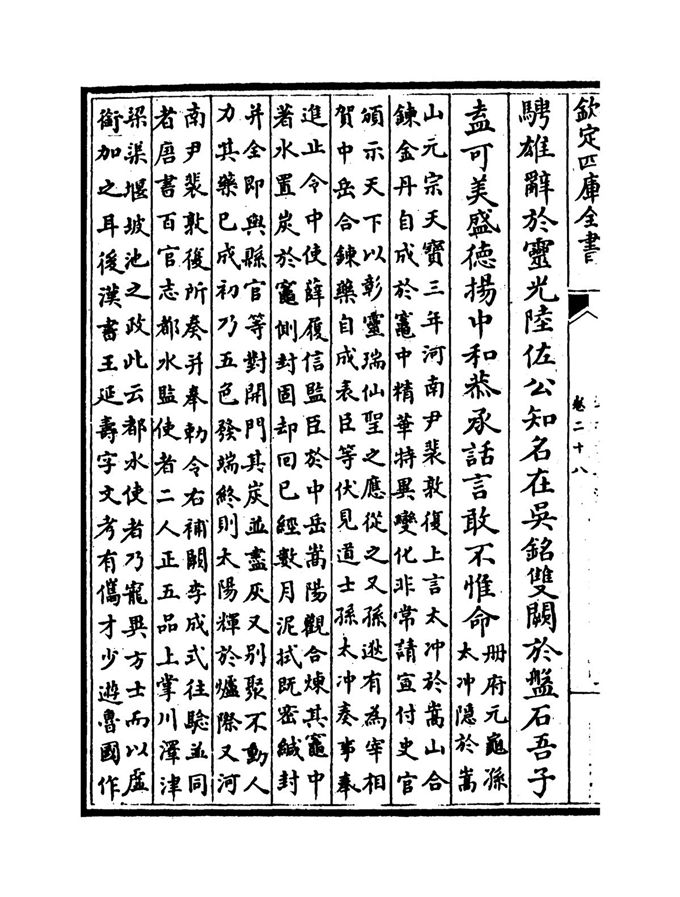 欽定四庫全書
卷二十八
騁雄辭於靈光陸佐公知名在吳銘雙闕於盤石吾子
盍可美盛德揚中和恭承話言敢不惟命
册府元龜孫
太冲隠於嵩
山元宗天寶三年河南尹裴敦復上言太冲於嵩山合
鍊金丹自成於竈中精華特異變化非常請宣付史官
頒示天下以彰靈瑞仙聖之應從之又孫逖有為宰相
賀中岳合鍊藥自成表臣等伏見道士孫太冲奏事奉
進止令中使薛履信監臣於中岳嵩陽觀合煉其竈中
著水置炭於竈側封固却回已經數月泥拭既密緘封
并全即與縣官等對開門其炭並盡灰又別聚不動人
力其藥已成初乃五色發端終則太陽輝於爐際又河
南尹裴敦復所奏并奉勅令右補闕李成式往驗並同
者唐書百官志都水監使者二人正五品上掌川澤津
梁渠堰坡池之政此云都水使者乃寵異方士而以虛
銜加之耳後漢書王延壽字文考有儁才少遊魯國作